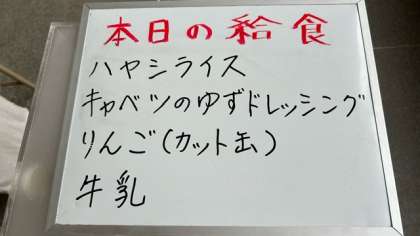 本日の給食
ハヤシライス
キャベツのゆずドレッシング
りんご(カット缶)
牛乳